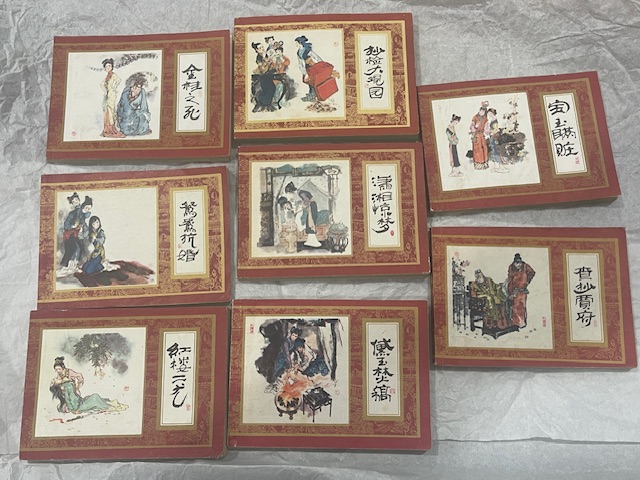 金桂之死
抄检大观园
宝玉瞒赃
鸳鸯抗婚
潇湘惊梦
查抄贾府
红楼二尤
黛玉焚稿